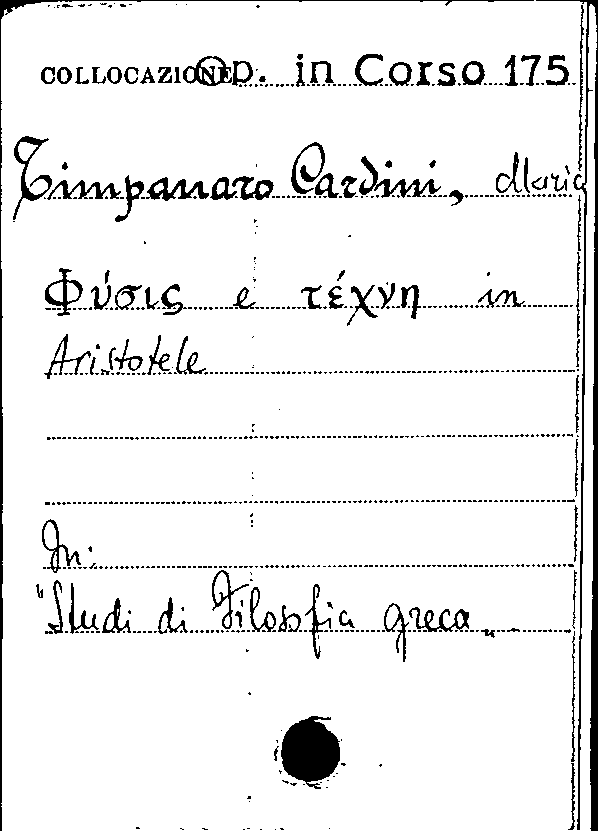 COLLOCAZIONE Op. in Corso 175
Timpanaro Cardini, Maria
Φύσις e τέχνη in
Aristotele
In:
"Studi di Filosofia greca".